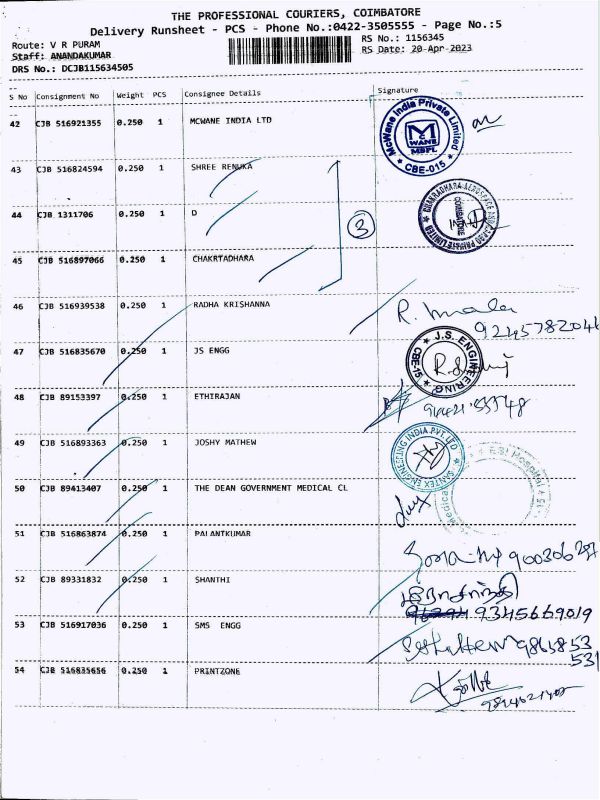 THE PROFESSIONAL COURIERS, COIMBATORE
Delivery Runsheet - PCS - Phone No.:0422-3505555 - Page No.:5
Route: V R PURAM
RS No.: 1156345
Staff: ANANDAKUMAR
RS Date: 20-Apr-2023
DRS No.: DCJB115634505
S No Consignment No Weight PCS Consignee Details Signature
42 CJB 516921355 0.250 1 MCWANE INDIA LTD
McWane India Private Limited
MCWANE
CBE-015
43 CJB 516824594 0.250 1 SHREE RENUKA
44 CJB 1311706 0.250 1 D
3
COIMBATORE
PRIVATE LIMITED
45 CJB 516897066 0.250 1 CHAKRTADHARA
46 CJB 516939538 0.250 1 RADHA KRISHANNA
R. mala
9245782046
47 CJB 516835670 0.250 1 JS ENGG
J.S. ENGINEERING
CBE-15
48 CJB 89153397 0.250 1 ETHIRAJAN
49 CJB 516893363 0.250 1 JOSHY MATHEW
SANTEX ENGINEERING INDIA PVT. LTD
50 CJB 89413407 0.250 1 THE DEAN GOVERNMENT MEDICAL CL
E.S.I Hospital
Medical
51 CJB 516863874 0.250 1 PALANTKUMAR
52 CJB 89331832 0.250 1 SHANTHI
9345669019
53 CJB 516917036 0.250 1 SMS ENGG
54 CJB 516835656 0.250 1 PRINTZONE